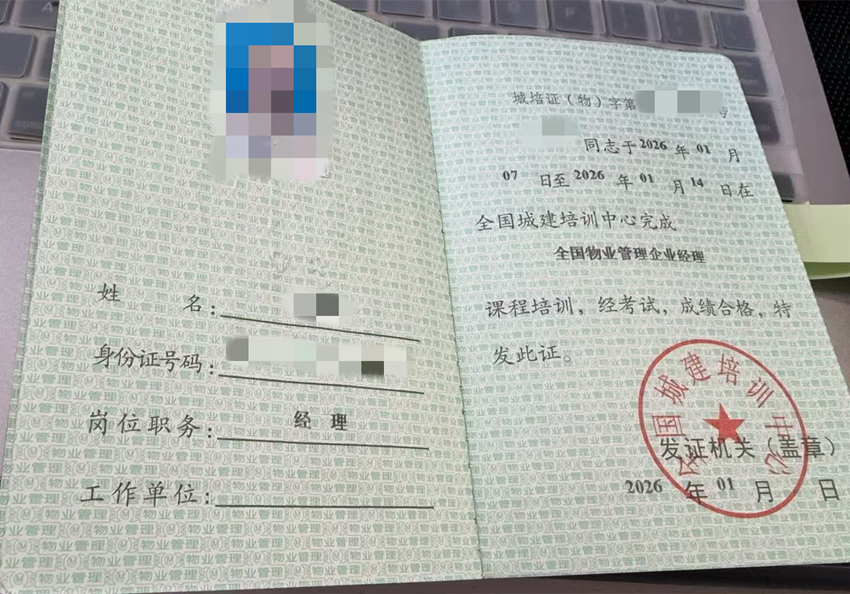 姓 名：
身份证号码：
岗位职务： 经 理
工作单位：
城培证（物）字第 号
同志于2026年01月
07日至2026年01月14日在
全国城建培训中心完成
全国物业管理企业经理
课程培训，经考试，成绩合格，特
发此证。
全国城建培训中心
发证机关（盖章）
2026年01月 日